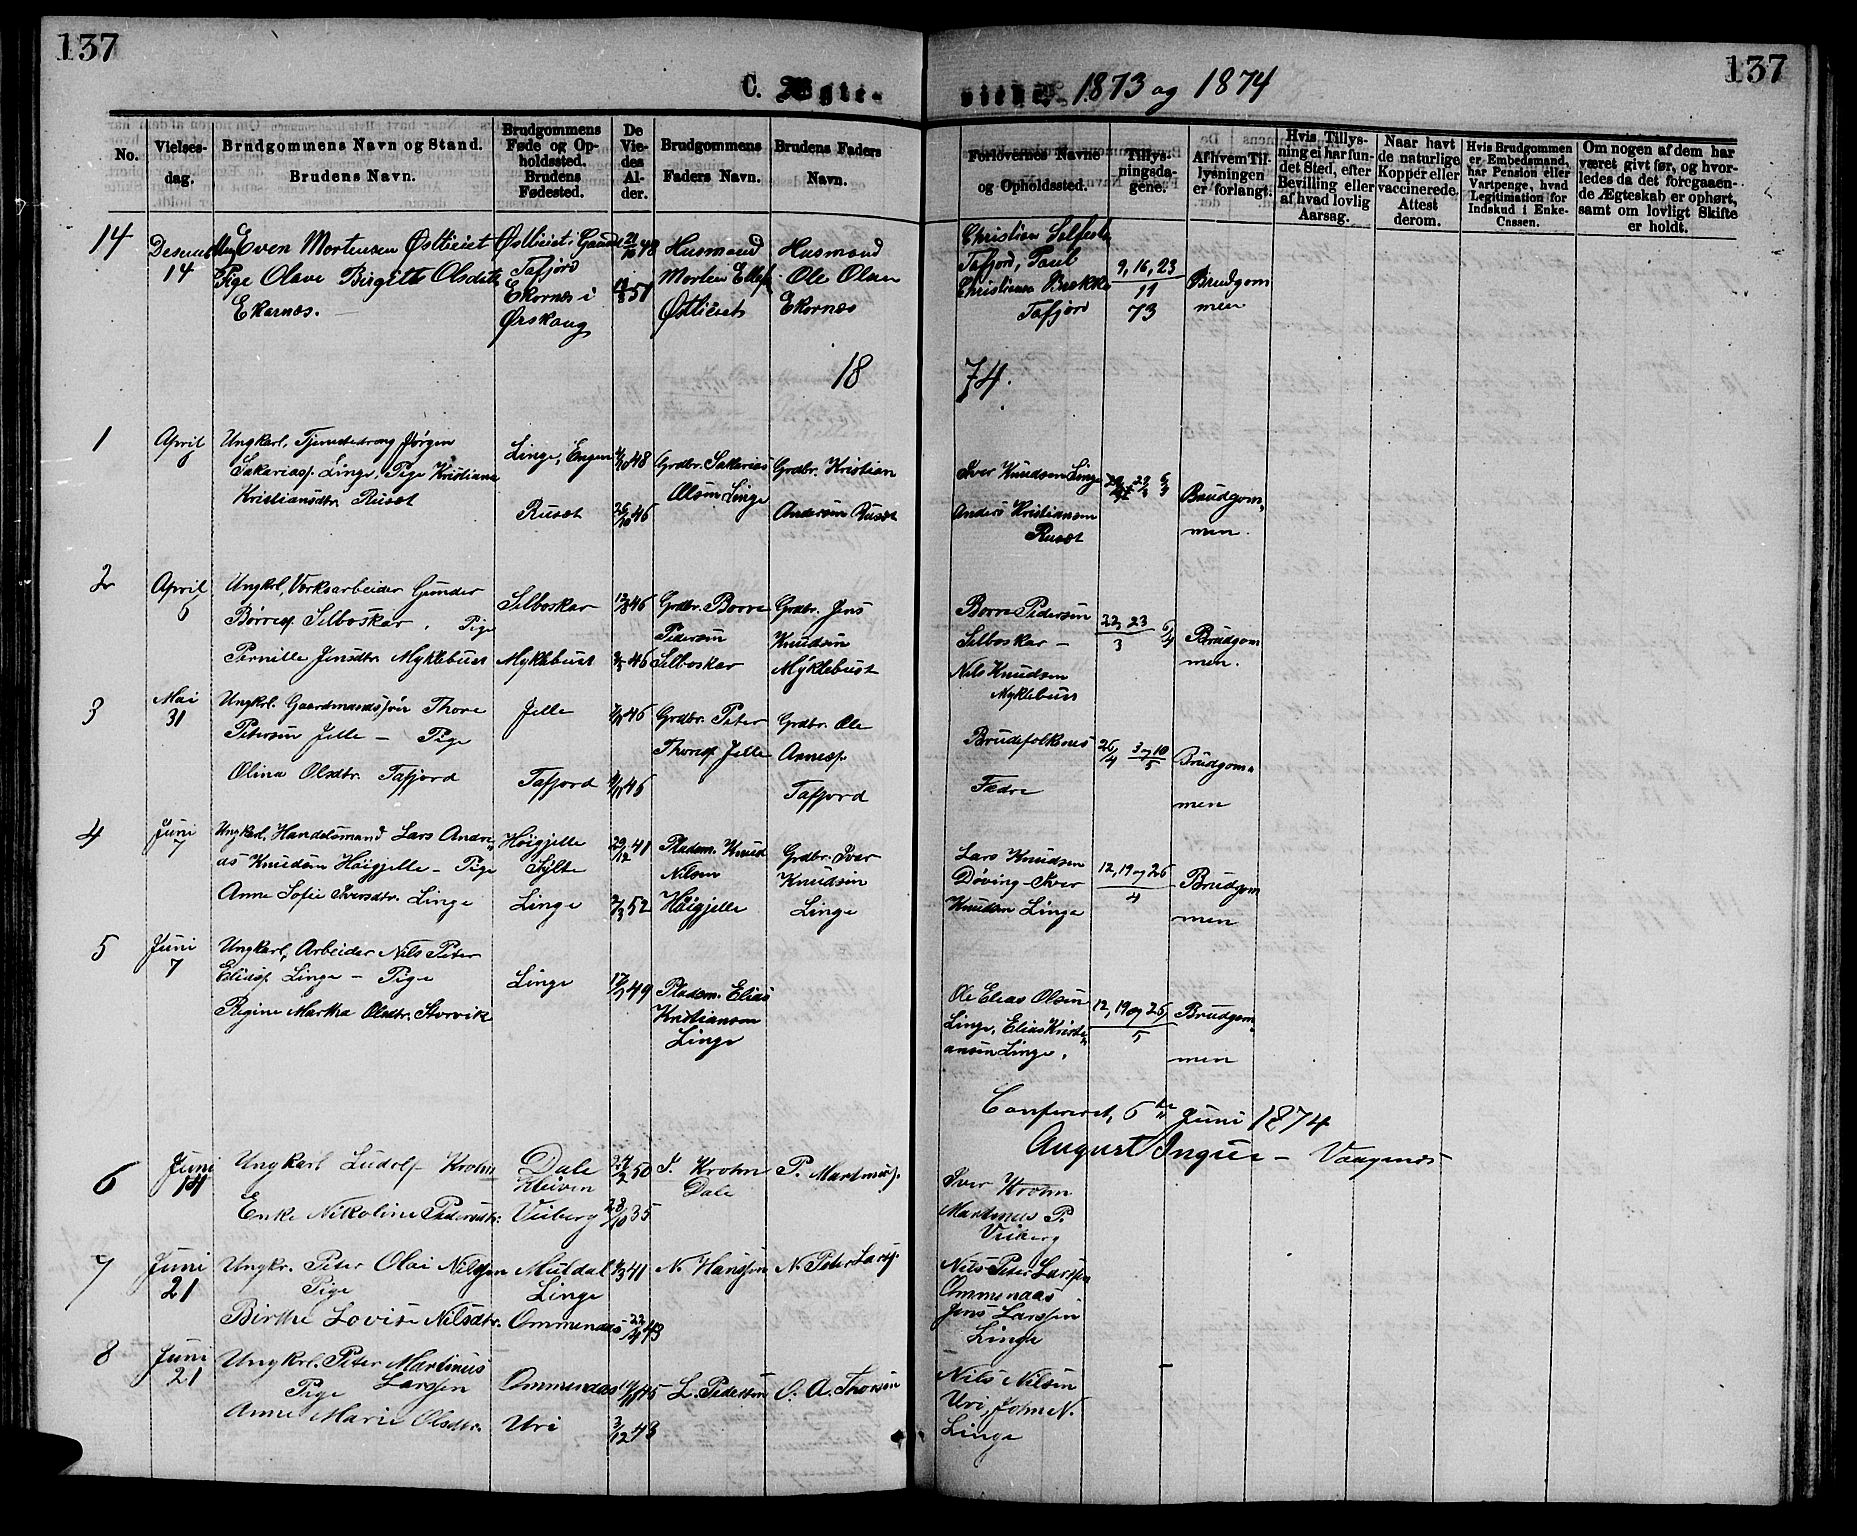 137
137
C. Ægte-
viede. 1873 og 1874
No.
Vielses-
dag.
Brudgommens Navn og Stand.
Brudens Navn.
Brudgommens
Føde og Op-
holdssted.
Brudens
Fødested.
De
Vie-
des
Al-
der.
Brudgommens
Faders Navn.
Brudens Faders
Navn.
Forlovernes Navne
og Opholdssted.
Tillys-
ningsda-
gene.
Af hvem Til-
lysningen
er forlangt.
Hvis Tillys-
ning ei har fun-
det Sted, efter
Bevilling eller
af hvad lovlig
Aarsag.
Naar havt
de naturlige
Kopper eller
vaccinerede.
Attest
derom.
Hvis Brudgommen
er Embedsmand,
har Pension eller
Vartpenge, hvad
Legitimation for
Indskud i Enke-
Cassen.
Om nogen af dem har
været givt før, og hvor-
ledes da det foregaaen-
de Ægteskab er ophørt,
samt om lovligt Skifte
er holdt.
14
14
Even Mortensen Østlieiet
Pige Olave Birgitte Olsdtr
Ekornæs.
Østlieiet i
Tafjord
Ekornæs i
Ørskoug
48
51
Husmand
Morten
Østlieiet
Husmand
Ole Olsen
Ekornæs
Christian
Tafjord, Paul
Christiansen Brække
Tafjord
9, 16, 23
11
73
Brudgom
men
18
74.
1
April
6
Ungkarl, Tjenestedreng Jørgen
Sakariass. Linge, Pige Kristiane
Kristiansdtr. Rusæt
Linge, Engen
Rusæt
48
26/10 46
Grdbr. Sakarias
Olsen Linge
Grdbr. Kristian
Andersen Rusæt
Iver Knudsen Linge
Anders Kristiansen
Rusæt
Brudgom-
men.
2
April
6
Ungkrl, Værksarbeider Gunder
Børres. Selboskar. Pige
Pernille Jensdtr. Myklebust
Selboskar
Myklebust
46
46
Grdbr. Børre
Pedersen
Selboskar
Grdbr. Jens
Knudsen
Myklebust
Børre Pedersen
Selboskar -
Nils Knudsen
Myklebust
22, 23
3
6/4
Brudgom
men.
3
Mai
31
Ungkrl. Gaardmandssøn Thore
Petersen Jelle - Pige
Olina Olsdtr. Tafjord
Jelle
Tafjord
46
46
Grdbr. Peter
Thoress. Jelle
Grdbr. Ole
Arness.
Tafjord
Brudefolkenes
Fædre
26/4 3 og 10
5
Brudgom-
men
4
Juni
7
Ungkarl, Handelsmand Lars Andre-
as Knudsen Høigjelle - Pige
Anne Sofie Iversdtr. Linge
Høigjelle
Sylte
Linge
29/12 41
52
Pladsm. Knud
Nilsen
Høigjelle
Grdbr. Iver
Knudsen
Linge
Lars Knudsen
Døving - Iver
Knudsen Linge
12, 19 og 26
4
Brudgom
men
5
Juni
7
Ungkarl, Arbeider Nils Peter
Eliass. Linge - Pige
Regine Martha Olsdtr. Storvik
Linge
49
Pladsm. Elias
Kristiansen
Linge
Ole Elias Olsen
Linge, Elias Kristi-
ansen Linge.
12, 19 og 26
5
Brudgom-
men
Confereret, 6te Juni 1874
August
6
Juni
14
Ungkarl Ludolf Krohn
Enke Nikoline Pedersdtr.
Dale
Kleiven
Viiberg
24/2 50
28/10 35
I. Krohn
Dale
P. Martinuss.
Iver Krohn
Martinus P.
Viiberg
7
Juni
21
Ungkr. Peter Olai Nilssen
Pige
Birthe Lovise Nilsdtr.
Muldal
Linge
Ommenaas
41
22/4 43
N. Hanssen
N. Peter Larss.
Nils Peter Larssen
Ommenaas
Jens Larssen
Linge
8
Juni
21
Ungkrl. Peter Martinus
Pige Larssen
Anne Marie Olsdtr.
Ommenaas
Uri
45
3/12 43
L. Pedersen
O. A. Thoresen
Nils Nilsen
Uri, John N.
Linge